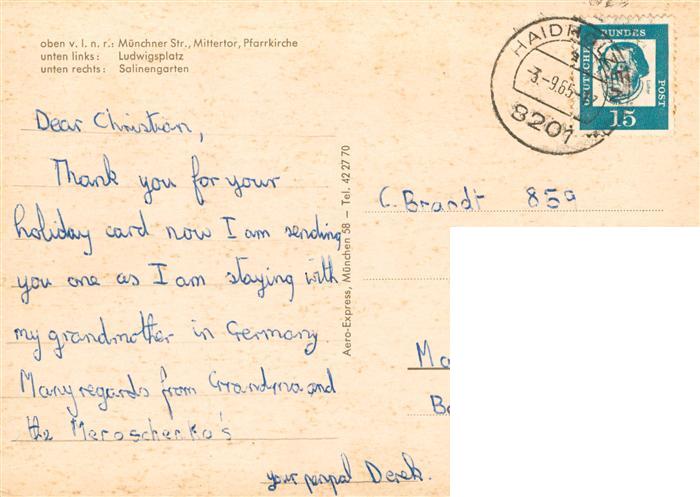 oben v. l. n. r.: Münchner Str., Mittertor, Pfarrkirche
unten links: Ludwigsplatz
unten rechts: Salinengarten
Dear Christian,
Thank you for your
holiday card now I am sending
you one as I am staying with
my grandmother in Germany.
Many regards from Grandma and
the Meroschenko's
your penpal Derek.
Aero-Express, München 58 — Tel. 42 27 70
8201
-3.-9.65
DEUTSCHE BUNDES POST
Luther
15
C. Brandt 859
Ma
Ba